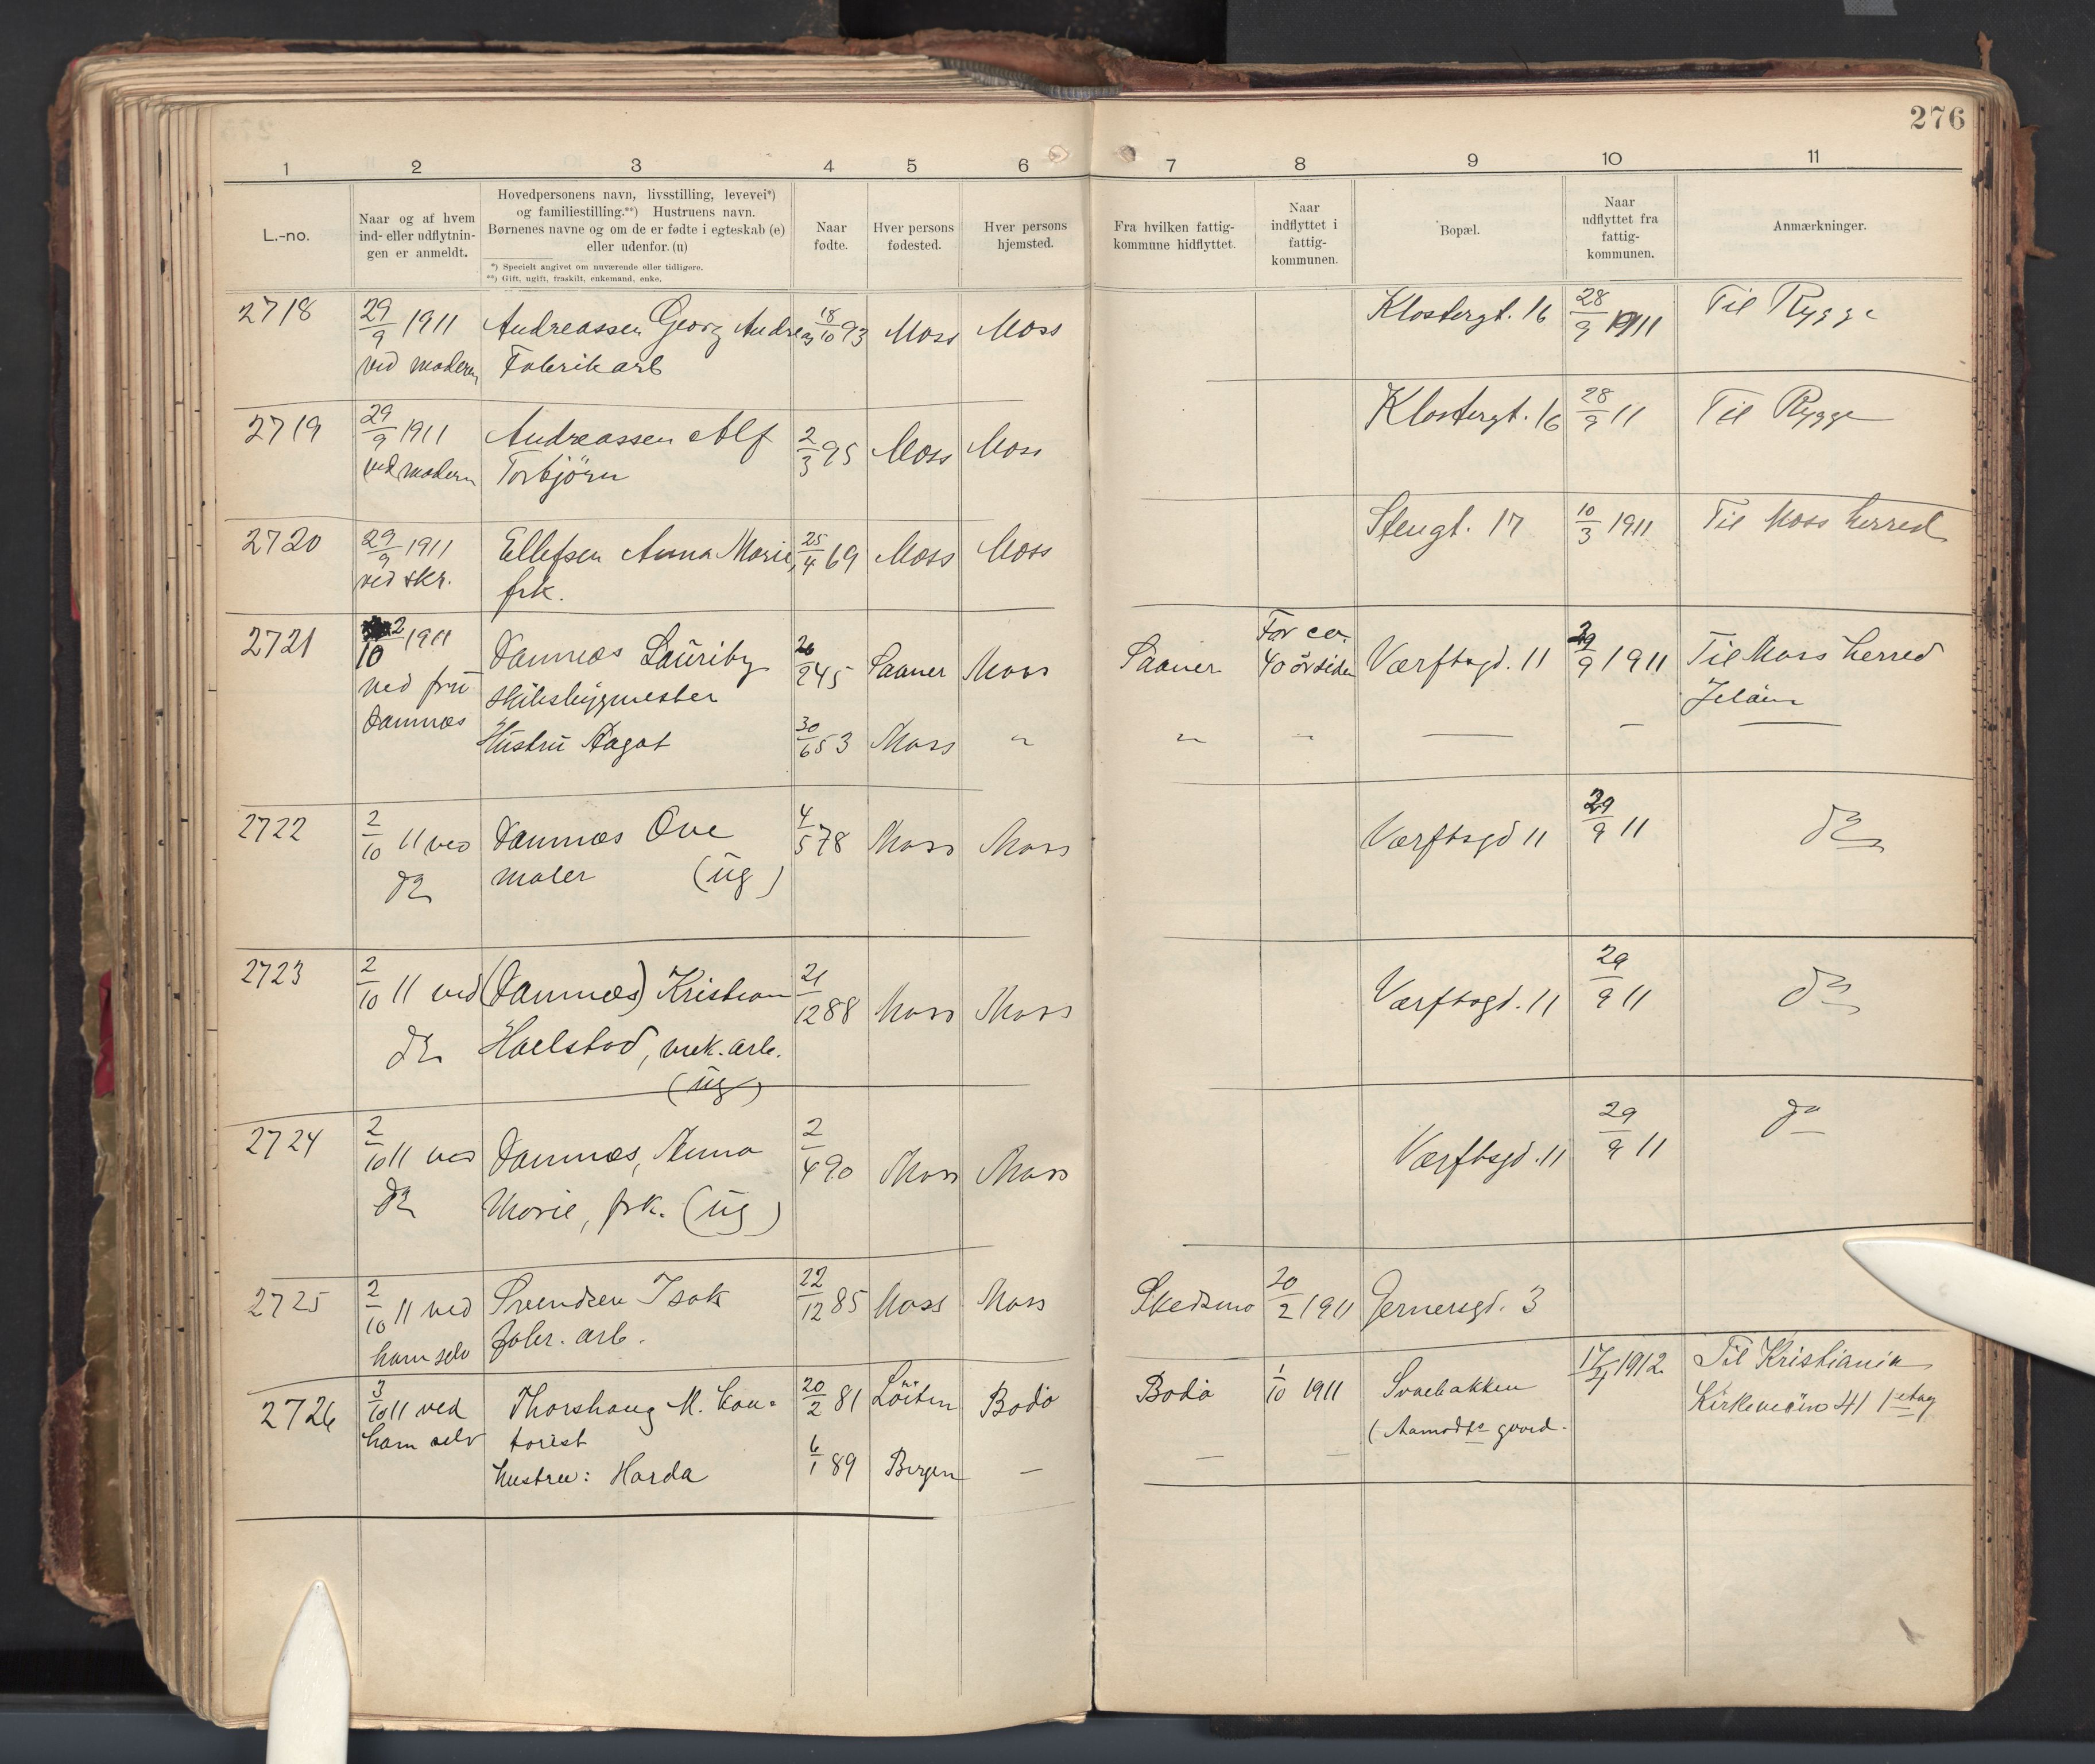 276
1 2 3 4 5 6 7 8 9 10 11
L.-no.
Naar og af hvem
ind- eller udflytnin-
gen er anmeldt.
Hovedpersonens navn, livsstilling, levevei*)
og familiestilling.**) Hustruens navn.
Børnenes navne og om de er fødte i egteskab (e)
eller udenfor. (u)
*) Specielt angivet om nuværende eller tidligere.
**) Gift, ugift, fraskilt, enkemand, enke.
Naar
fødte.
Hver persons
fødested.
Hver persons
hjemsted.
Fra hvilken fattig-
kommune hidflyttet.
Naar
indflyttet i
fattig-
kommunen.
Bopæl.
Naar
udflyttet fra
fattig-
kommunen.
Anmærkninger.
2718 29/9 1911 Andreassen Georg Andreas 18/10 93 Moss Moss Klostergt. 16 28/9 1911 Til Rygge
ved moderen Fabrikarb
2719 29/9 1911 Andreassen Alf 2/3 95 Moss Moss Klostergt. 16 28/9 11 Til Rygge
ved modern Torbjörn
2720 29/9 1911 Ellefsen Anna Marie, 25/4 69 Moss Moss Stengt. 17 10/3 1911 Til Moss herred
ved skr. frk.
2721 2/10 1911 Damnæs Lauritz 26/2 45 Saaner Moss Saaner For ca. 40 år siden Værftsgd. 11 29/9 1911 Til Moss herred
ved fru skibsbyggmester Jelöen
Damnæs Hustru Aagot 30/6 53 Moss " " " — — —
2722 2/10 11 ved Damnæs Ove 4/5 78 Moss Moss Værftsgd 11 29/9 11 do
do maler (ug)
2723 2/10 11 ved (Damnæs) Kristian 21/12 88 Moss Moss Værftsgd. 11 29/9 11 do
do Haelstad, mek. arb.
(ug)
2724 2/10 11 ved Damnæs, Anna 2/4 90 Moss Moss Værftsgd. 11 29/9 11 do
do Marie, frk. (ug)
2725 2/10 11 ved Svendsen Isak 22/12 85 Moss Moss Skedsmo 20/2 1911 Gernersgd. 3
ham selv fabr. arb.
2726 3/10 11 ved Thorshaug M. kon- 20/2 81 Löiten Bodö Bodö 1/10 1911 Svaebakken 1912 Til Kristiania
ham selv torist (Aamodts gaard. 41 1ste etag
hustru: Harda 6/1 89 Bergen — — —